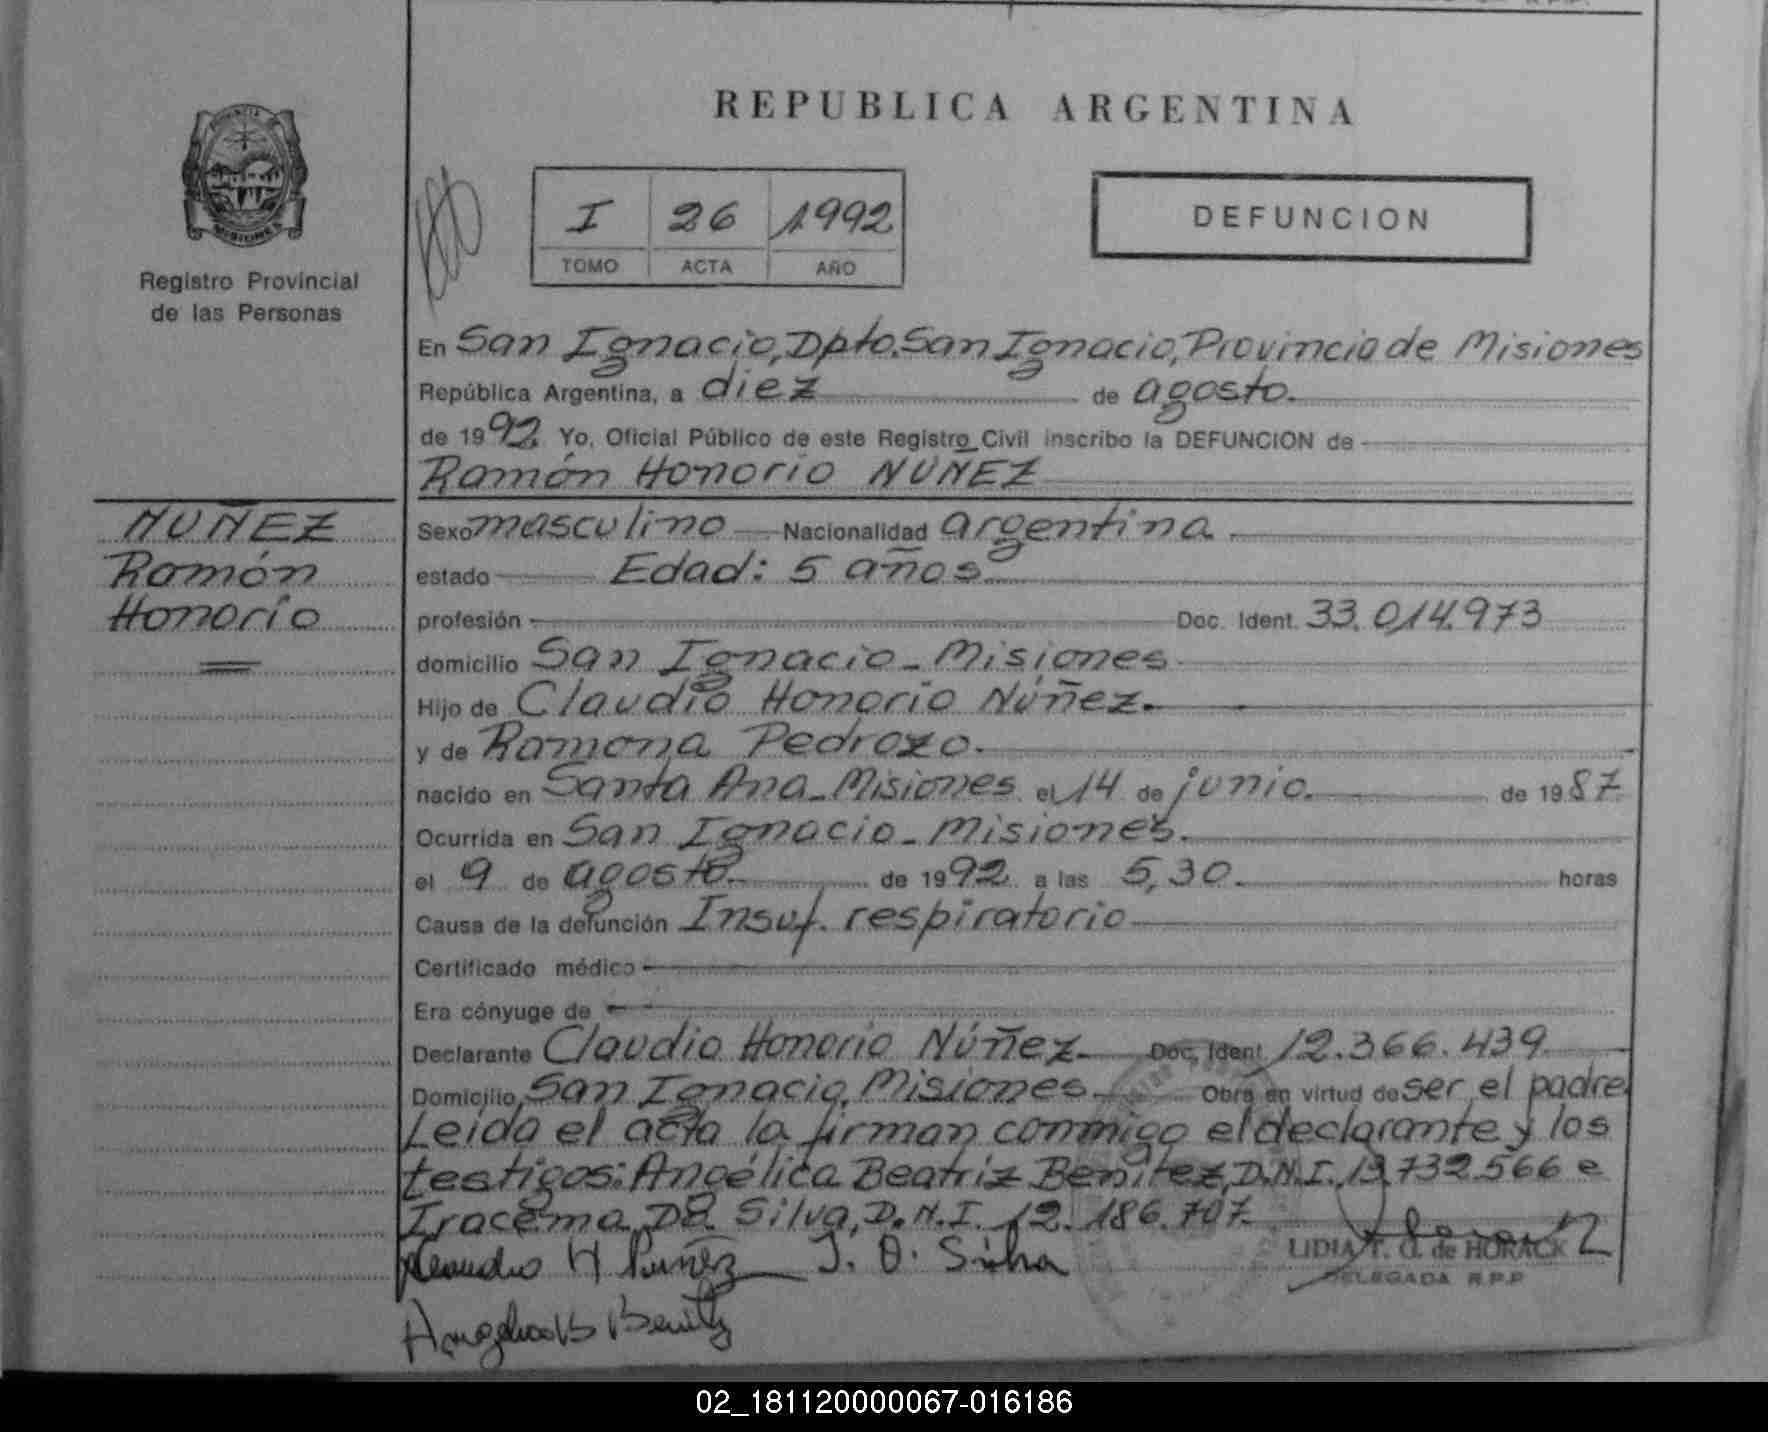 REPUBLICA ARGENTINA
Registro Provincial
de las Personas
I 26 1992
TOMO ACTA AÑO
DEFUNCION
En San Ignacio, Dpto. San Ignacio, Provincia de Misiones
República Argentina, a diez de agosto.
de 1992. Yo, Oficial Público de este Registro Civil inscribo la DEFUNCION de
Ramón Honorio NUÑEZ
NUÑEZ
Ramón
Honorio
Sexo masculino Nacionalidad argentina.
estado Edad: 5 años
profesión Doc. Ident. 33.014.973
domicilio San Ignacio - Misiones
Hijo de Claudio Honorio Núñez.
y de Ramona Pedrozo.
nacido en Santa Ana - Misiones el 14 de junio. de 1987.
Ocurrida en San Ignacio - Misiones.
el 9 de agosto. de 1992 a las 5,30. horas
Causa de la defunción Insuf. respiratorio
Certificado médico
Era cónyuge de
Declarante Claudio Honorio Núñez. Doc. Ident. 12.366.439
Domicilio San Ignacio, Misiones. Obra en virtud de ser el padre.
Leida el acta la firman conmigo el declarante y los
testigos: Angélica Beatriz Benítez, D.N.I. 13.732.566 e
Iracema Da Silva, D.N.I. 12.186.707.
Claudio H Nuñez J. D. Silva
LIDIA T. O. de HORACK
DELEGADA R.P.P
Angelica B Benitez
02_181120000067-016186